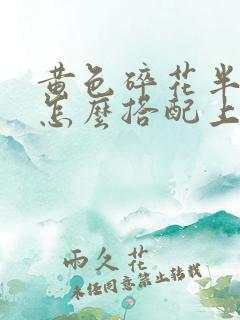 黄色碎花半
怎麼搭配上
雨久花
未经同意禁止转载